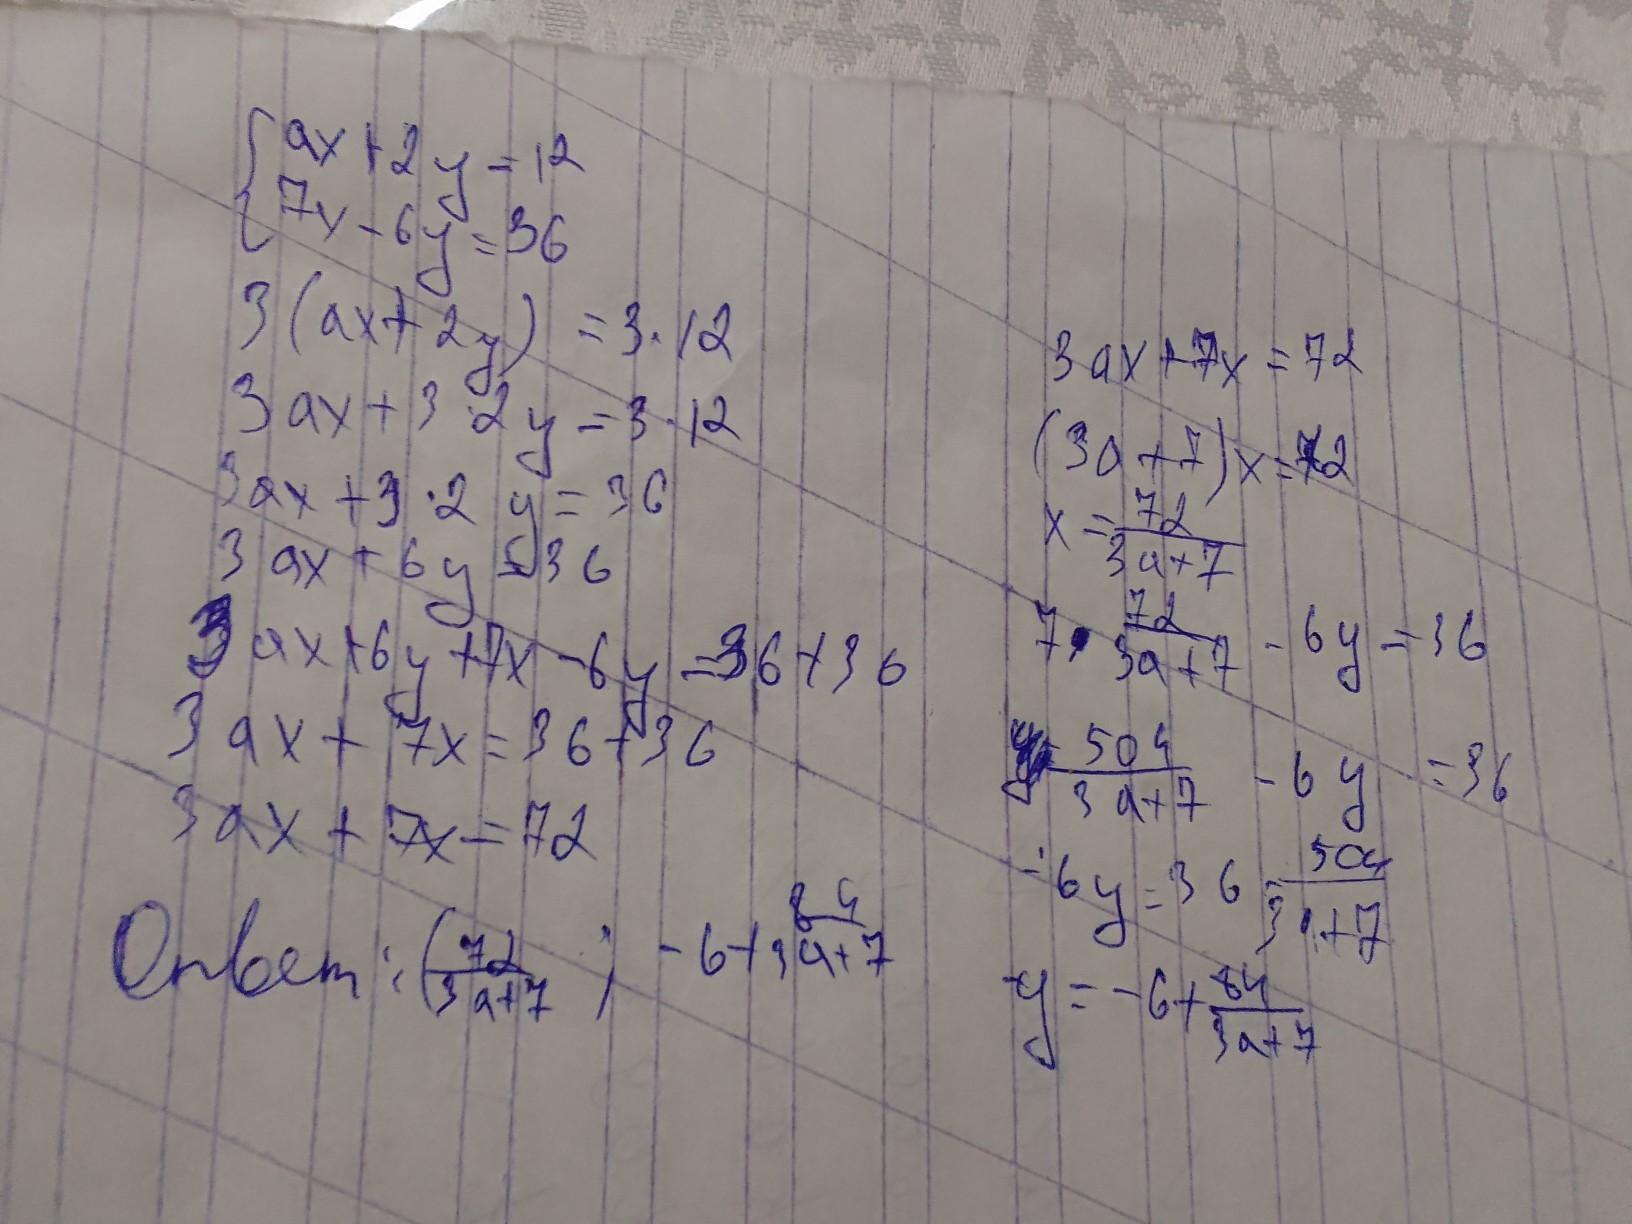 {ax+2y=12
{7x-6y=36
3(ax+2y)=3·12
3ax+3·2y=3·12
3ax+3·2y=36
3ax+6y=36
3ax+6y+7x-6y=36+36
3ax+7x=36+36
3ax+7x=72
Ответ: (72/3a+7; -6+84/3a+7
3ax+7x=72
(3a+7)x=72
x=72/3a+7
7·72/3a+7-6y=36
504/3a+7-6y=36
-6y=36-504/3a+7
y=-6+84/3a+7